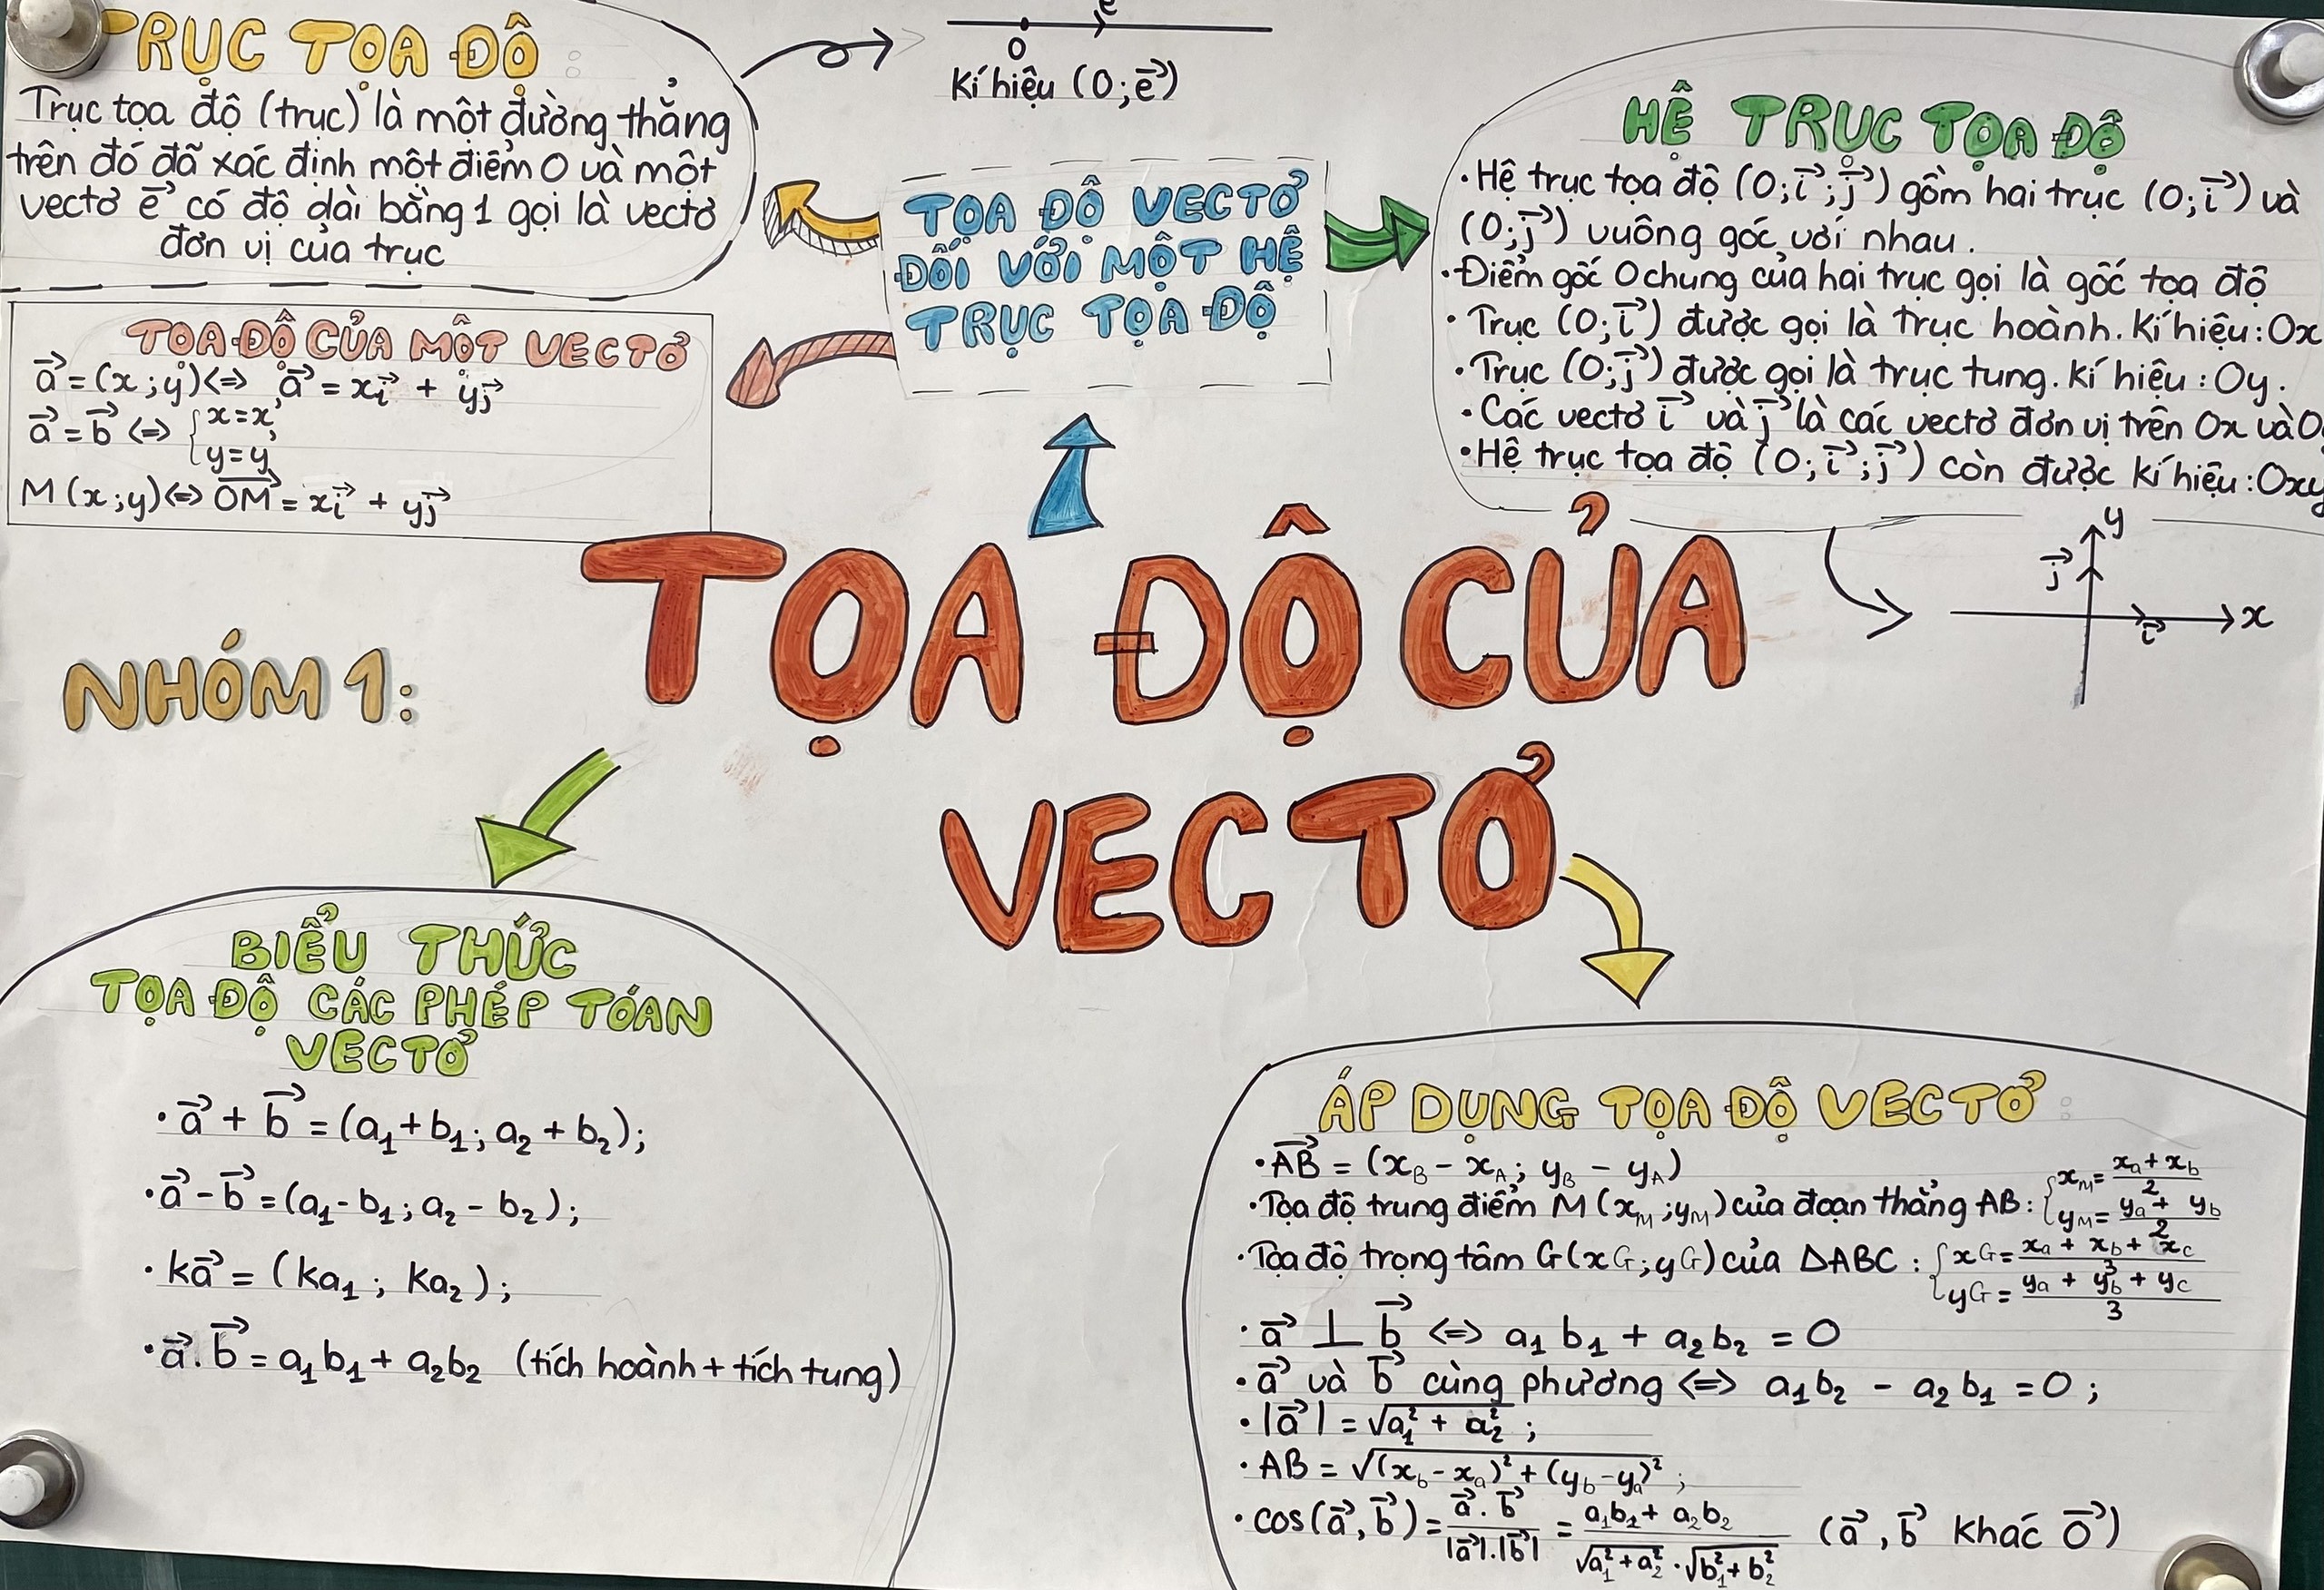 TRỤC TỌA ĐỘ:
Trục tọa độ (trục) là một đường thẳng
trên đó đã xác định một điểm O và một
vectơ e⃗ có độ dài bằng 1 gọi là vectơ
đơn vị của trục
e⃗
O
Kí hiệu (O; e⃗)
TỌA ĐỘ VECTƠ
ĐỐI VỚI MỘT HỆ
TRỤC TỌA ĐỘ
HỆ TRỤC TỌA ĐỘ
• Hệ trục tọa độ (O; i⃗; j⃗) gồm hai trục (O; i⃗) và
(O; j⃗) vuông góc với nhau.
• Điểm gốc O chung của hai trục gọi là gốc tọa độ
• Trục (O; i⃗) được gọi là trục hoành. Kí hiệu: Ox
• Trục (O; j⃗) được gọi là trục tung. Kí hiệu: Oy.
• Các vectơ i⃗ và j⃗ là các vectơ đơn vị trên Ox và O
• Hệ trục tọa độ (O; i⃗; j⃗) còn được kí hiệu: Oxy
y
j⃗
i⃗
x
TỌA ĐỘ CỦA MỘT VECTƠ
a⃗ = (x; y) <=> a⃗ = xi⃗ + yj⃗
a⃗ = b⃗ <=> { x = x'
y = y'
M(x; y) <=> OM⃗ = xi⃗ + yj⃗
TỌA ĐỘ CỦA
VECTƠ
NHÓM 1:
BIỂU THỨC
TỌA ĐỘ CÁC PHÉP TÓAN
VECTƠ
• a⃗ + b⃗ = (a₁ + b₁; a₂ + b₂);
• a⃗ - b⃗ = (a₁ - b₁; a₂ - b₂);
• ka⃗ = (ka₁; ka₂);
• a⃗ . b⃗ = a₁b₁ + a₂b₂ (tích hoành + tích tung)
ÁP DỤNG TỌA ĐỘ VECTƠ:
• AB⃗ = (x_B - x_A; y_B - y_A)
• Tọa độ trung điểm M(x_M; y_M) của đoạn thẳng AB: { x_M = (x_a + x_b)/2
y_M = (y_a + y_b)/2
• Tọa độ trọng tâm G(xG; yG) của ΔABC: { xG = (x_a + x_b + x_c)/3
yG = (y_a + y_b + y_c)/3
• a⃗ ⊥ b⃗ <=> a₁b₁ + a₂b₂ = 0
• a⃗ và b⃗ cùng phương <=> a₁b₂ - a₂b₁ = 0;
• |a⃗| = √(a₁² + a₂²);
• AB = √((x_b - x_a)² + (y_b - y_a)²);
• cos(a⃗, b⃗) = (a⃗ . b⃗)/(|a⃗|.|b⃗|) = (a₁b₁ + a₂b₂)/(√(a₁² + a₂²) . √(b₁² + b₂²)) (a⃗, b⃗ khác 0⃗)